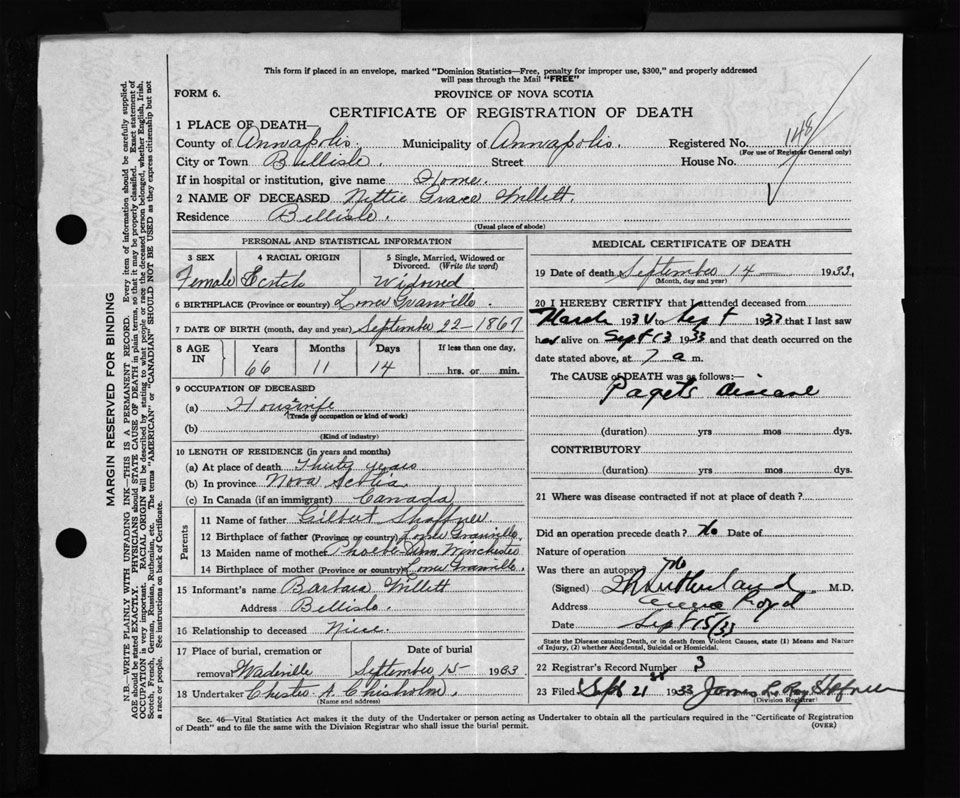 This form if placed in an envelope, marked "Dominion Statistics—Free, penalty for improper use, $300," and properly addressed
will pass through the Mail "FREE"
FORM 6. PROVINCE OF NOVA SCOTIA
CERTIFICATE OF REGISTRATION OF DEATH
1 PLACE OF DEATH—
County of Annapolis. Municipality of Annapolis. Registered No. 148
(For use of Registrar General only)
City or Town Bellisle. Street House No.
If in hospital or institution, give name Home.
2 NAME OF DECEASED Nettie Grace Willett.
Residence Bellisle.
(Usual place of abode)
PERSONAL AND STATISTICAL INFORMATION
3 SEX 4 RACIAL ORIGIN 5 Single, Married, Widowed or
Divorced. (Write the word)
Female Widowed
6 BIRTHPLACE (Province or country) Lower Granville.
7 DATE OF BIRTH (month, day and year) September 22-1867
8 AGE IN Years Months Days If less than one day,
66 11 14 hrs. or min.
9 OCCUPATION OF DECEASED
(a) Housewife
(Trade or occupation or kind of work)
(b)
(Kind of industry)
10 LENGTH OF RESIDENCE (in years and months)
(a) At place of death Thirty years
(b) In province Nova Scotia
(c) In Canada (if an immigrant) Canada
Parents
11 Name of father Gilbert Shaffner
12 Birthplace of father (Province or country) Lower Granville.
13 Maiden name of mother Phoebe Ann Winchester
14 Birthplace of mother (Province or country) Lower Granville.
15 Informant's name Barbara Willett
Address Bellisle.
16 Relationship to deceased Niece.
17 Place of burial, cremation or Date of burial
removal Wadeville September 15- 1933
18 Undertaker Chester A. Chisholm.
(Name and address)
MEDICAL CERTIFICATE OF DEATH
19 Date of death September 14 1933.
(Month, day and year)
20 I HEREBY CERTIFY that I attended deceased from
March 193 to Sept 1933 that I last saw
her alive on Sept 13 1933 and that death occurred on the
date stated above, at 7 a m.
The CAUSE of DEATH was as follows:—
Pagets Disease
(duration) yrs mos dys.
CONTRIBUTORY
(duration) yrs mos dys.
21 Where was disease contracted if not at place of death?
Did an operation precede death? No Date of
Nature of operation
Was there an autopsy? No
(Signed) M.D.
Address
Date Sept 15/33
State the Disease causing Death, or in death from Violent Causes, state (1) Means and Nature
of Injury, (2) whether Accidental, Suicidal or Homicidal.
22 Registrar's Record Number 3
23 Filed Sept 21 1933 James
(Division Registrar)
Sec. 46—Vital Statistics Act makes it the duty of the Undertaker or person acting as Undertaker to obtain all the particulars required in the "Certificate of Registration
of Death" and to file the same with the Division Registrar who shall issue the burial permit. (OVER)
MARGIN RESERVED FOR BINDING
N.B.—WRITE PLAINLY WITH UNFADING INK—THIS IS A PERMANENT RECORD. Every item of information should be carefully supplied.
AGE should be stated EXACTLY. PHYSICIANS should STATE CAUSE OF DEATH in plain terms, so that it may be properly classified. Exact statement of
OCCUPATION is very important. RACIAL ORIGIN will be described by stating to what people or race the deceased person belonged, whether English, Irish,
Scotch, French, German, Russian, Ruthenian, etc. The terms "AMERICAN" or "CANADIAN" SHOULD NOT BE USED as they express citizenship but not
a race or people. See instructions on back of Certificate.